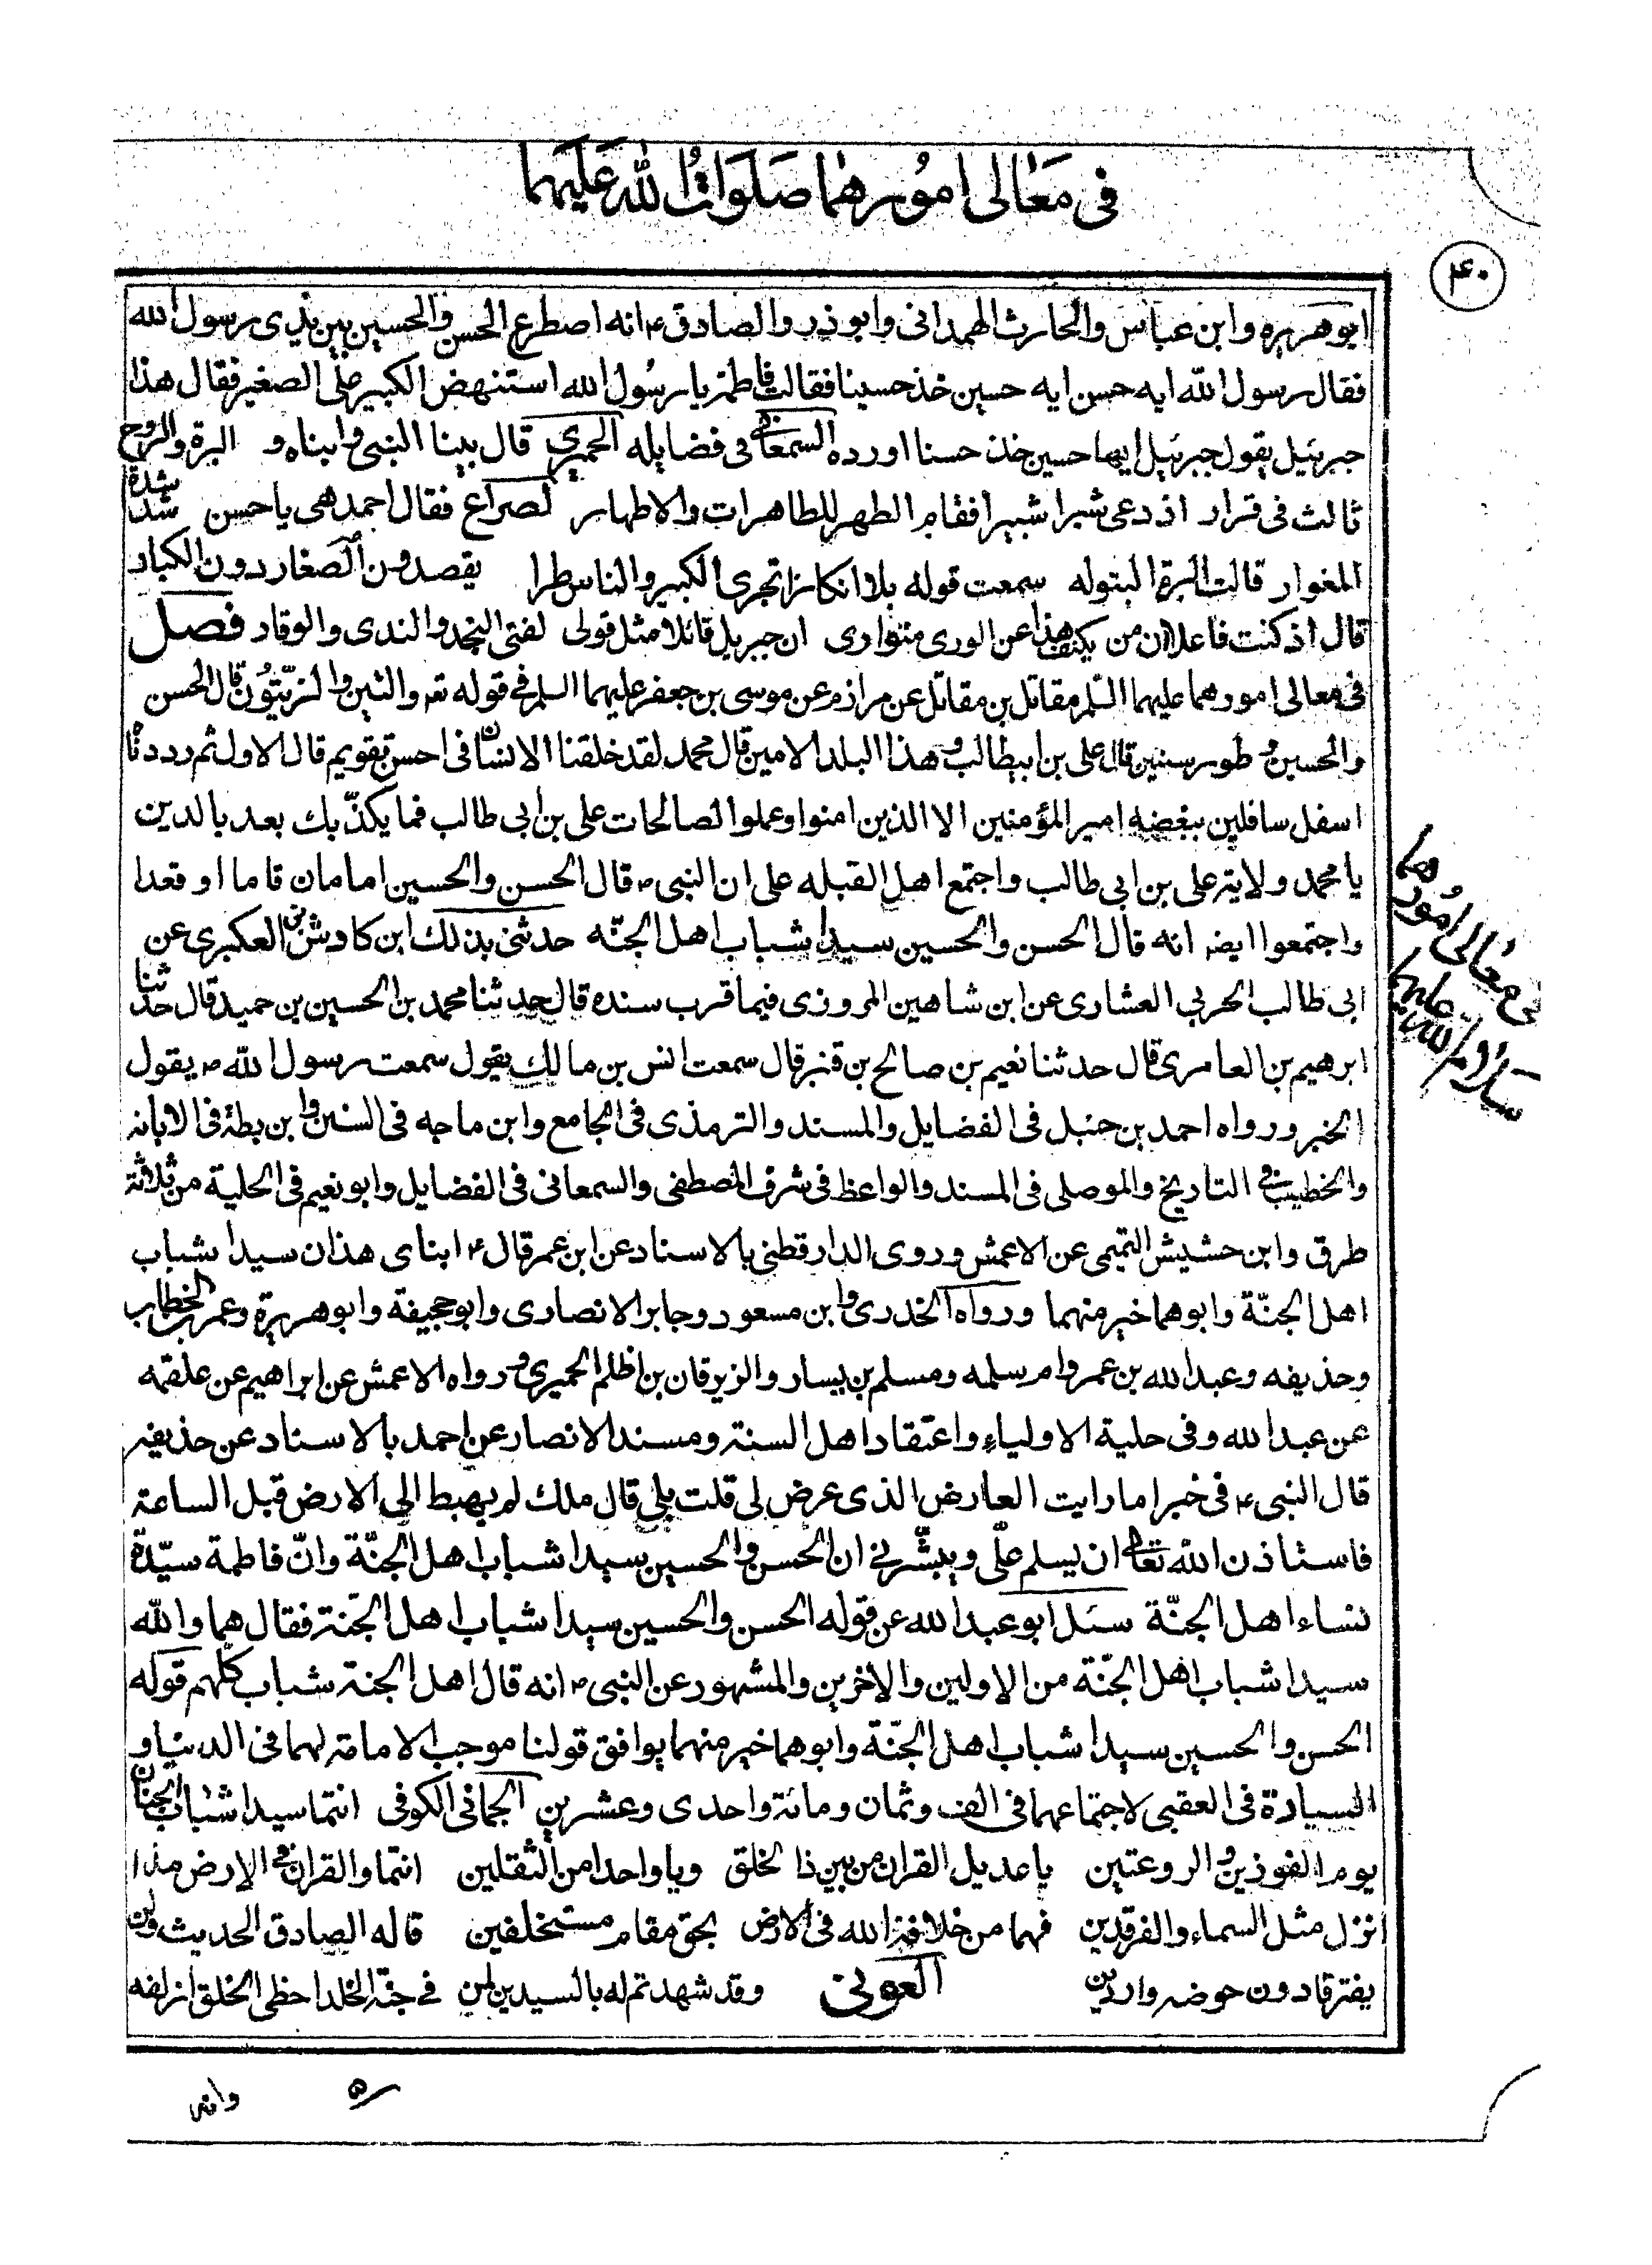 فى معالى امورهما صلوات الله عليهما
۴۰
ابوهريره وابن عباس والحارث الهمدانى وابوذر والصادق ع انه اصطرع الحسن والحسين بين يدى رسول الله
فقال رسول الله ايه حسن ايه حسين خذ حسينا فقالت فاطمة يا رسول الله استنهض الكبير على الصغير فقال هذا
جبرئيل يقول جبرئيل ايها حسين خذ حسنا اورده السمعانى فى فضايله الحميرى قال بينا النبى وابناه و البرة والروح
ثالث فى قرار اذ دعى شبرا شبيرا فقام الطهر للطاهرات والاطهار لصراع فقال احمد هى يا حسن شد شدة
المغوار قالت البرة البتوله سمعت قوله بلا انكار اتجرى الكبير والناس طرا يقصدون الصغار دون الكبار
قال اذ كنت فاعلا ان من يكنف هذا عن الورى متوارى ان جبريل قائلا مثل قولى لفتى النجد والندى والوقار فصل
فى معالى امورهما عليهما السلم مقاتل بن مقاتل عن مرازم عن موسى بن جعفر عليهما السلم فى قوله تع والتين والزيتون قال الحسن
والحسين وطور سنين قال على بن ابيطالب وهذا البلد الامين قال محمد لقد خلقنا الانسان فى احسن تقويم قال الاول ثم رددناه
اسفل سافلين ببغضه امير المؤمنين الا الذين امنوا وعملوا الصالحات على بن ابى طالب فما يكذّبك بعد بالدين
يا محمد ولاية على بن ابى طالب واجتمع اهل القبله على ان النبى ص قال الحسن والحسين امامان قاما او قعدا
واجتمعوا ايضا انه قال الحسن والحسين سيدا شباب اهل الجنّه حدثنى بذلك ابن كاوش العكبرى عن
ابى طالب الحربى العشارى عن ابن شاهين المروزى فيما قرب سنده قال حدثنا محمد بن الحسين بن حميد قال حدثنا
ابرهيم بن العامرى قال حدثنا نعيم بن صالح بن قنبر قال سمعت انس بن مالك يقول سمعت رسول الله ص يقول
الخبر ورواه احمد بن حنبل فى الفضايل والمسند والترمذى فى الجامع وابن ماجه فى السنن وابن بطة فى الابانه
والخطيب فى التاريخ والموصلى فى المسند والواعظ فى شرف المصطفى والسمعانى فى الفضايل وابو نعيم فى الحلية من ثلاثة
طرق وابن حشيش التميمى عن الاعمش وروى الدارقطنى بالاسناد عن ابن عمر قال ع ابناى هذان سيدا شباب
اهل الجنّة وابوهما خير منهما ورواه الخدرى وابن مسعود وجابر الانصارى وابو جحيفة وابو هريرة وعمر بن الخطاب
وحذيفه وعبد الله بن عمر وام سلمه ومسلم بن يسار والزبرقان بن اظلم الحميرى ورواه الاعمش عن ابراهيم عن علقمه
عن عبد الله وفى حلية الاولياء واعتقاد اهل السنة ومسند الانصار عن احمد بالاسناد عن حذيفه
قال النبى ع فى خبر اما رايت العارض الذى عرض لى قلت بلى قال ملك لم يهبط الى الارض قبل الساعة
فاستاذن الله تعالى ان يسلم علىّ ويبشّرنى ان الحسن والحسين سيدا شباب اهل الجنّة وانّ فاطمة سيّدة
نساء اهل الجنّة سئل ابو عبد الله عن قوله الحسن والحسين سيدا شباب اهل الجنّة فقال هما والله
سيدا شباب اهل الجنّة من الاولين والاخرين والمشهور عن النبى ص انه قال اهل الجنة شباب كلهم قوله
الحسن والحسين سيدا شباب اهل الجنّة وابوهما خير منهما يوافق قولنا موجب الامامة لهما فى الدنيا و
السيادة فى العقبى لاجتماعهما فى الف وثمان ومائة واحدى وعشرين الحمانى الكوفى انتما سيدا شباب الجنان
يوم الفوزين والروعتين يا عديل القران من بين ذا الخلق ويا واحدا من الثقلين انتما والقران فى الارض مذ ا
نزل مثل السماء والفرقدين فهما من خلافة الله فى الارض بحق مقام مستخلفين قاله الصادق الحديث ولن
يفترقا دون حوضه واردين العونى وقد شهدتم له بالسيدين لمن فى جنّة الخلد احظى الخلق ازلفه
فى معالى امورهما
سلام الله عليهما